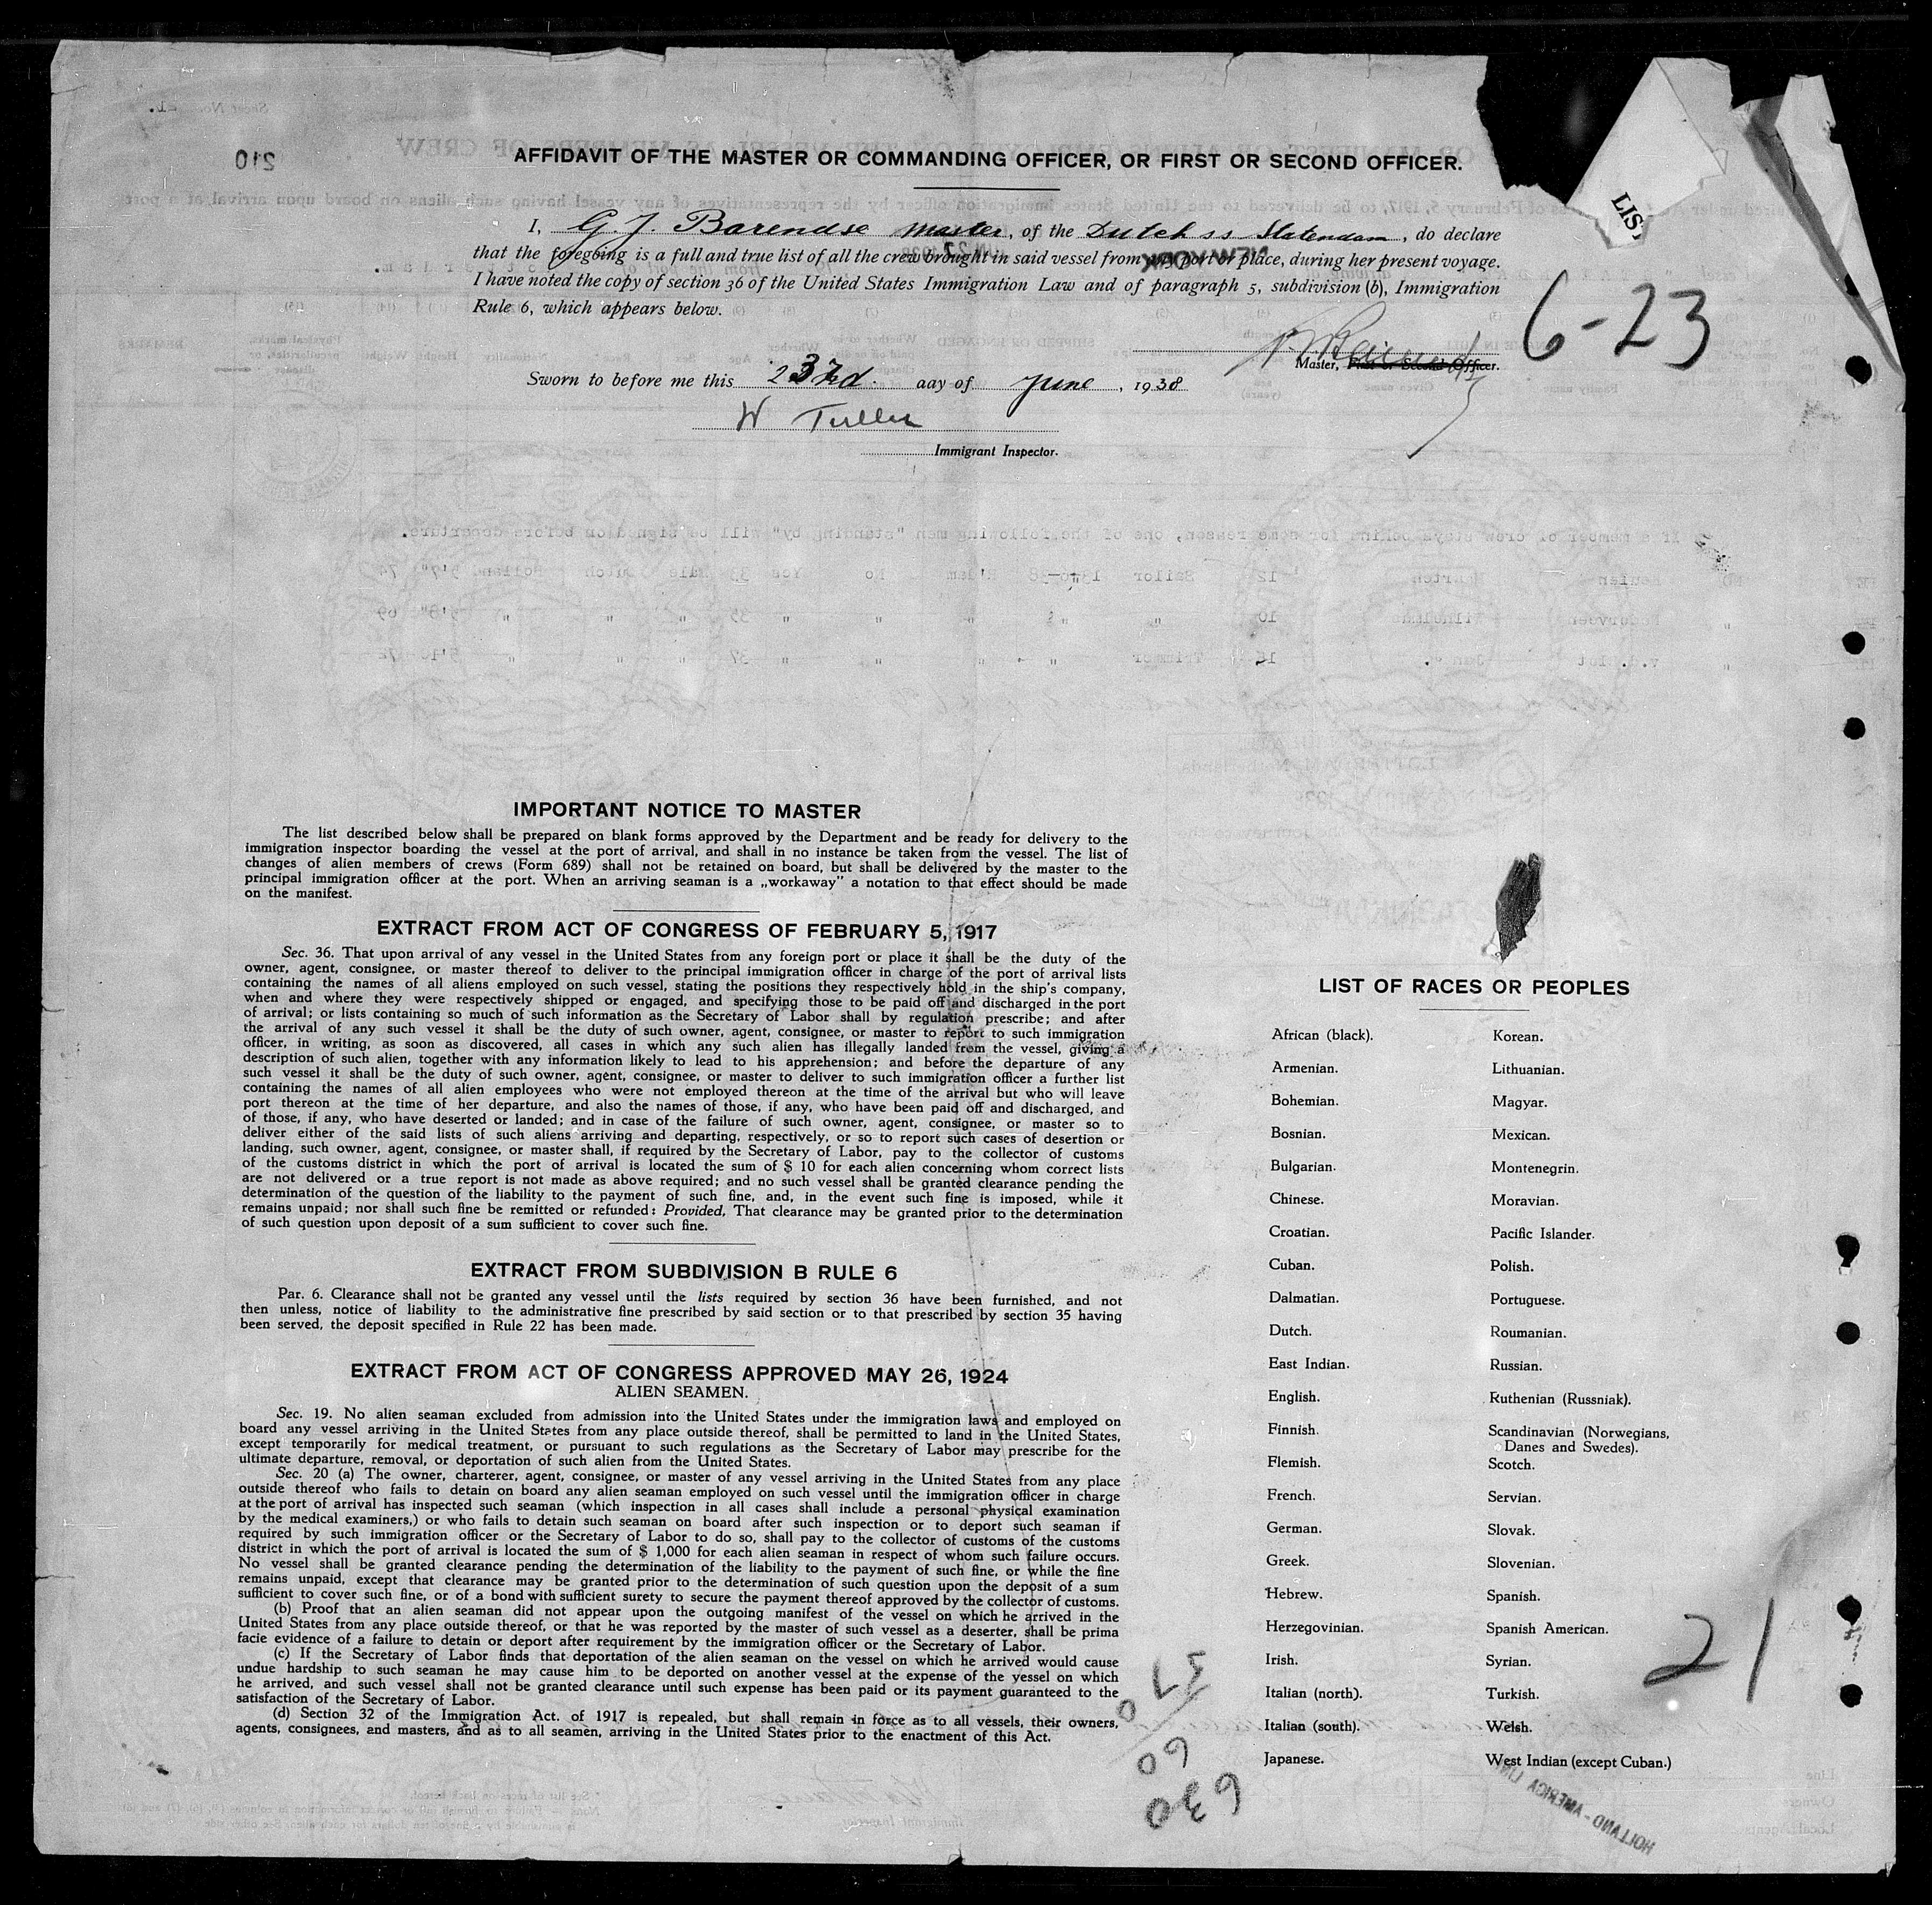 210
AFFIDAVIT OF THE MASTER OR COMMANDING OFFICER, OR FIRST OR SECOND OFFICER.
LIST
I, G. J. Barendse Master, of the Dutch ss Statendam, do declare
that the foregoing is a full and true list of all the crew brought in said vessel from any port or place, during her present voyage.
I have noted the copy of section 36 of the United States Immigration Law and of paragraph 5, subdivision (b), Immigration
Rule 6, which appears below.
6-23
Master, First or Second Officer.
Sworn to before me this 23rd. day of June, 1938
W Tuller
Immigrant Inspector.
IMPORTANT NOTICE TO MASTER
The list described below shall be prepared on blank forms approved by the Department and be ready for delivery to the
immigration inspector boarding the vessel at the port of arrival, and shall in no instance be taken from the vessel. The list of
changes of alien members of crews (Form 689) shall not be retained on board, but shall be delivered by the master to the
principal immigration officer at the port. When an arriving seaman is a „workaway" a notation to that effect should be made
on the manifest.
EXTRACT FROM ACT OF CONGRESS OF FEBRUARY 5, 1917
Sec. 36. That upon arrival of any vessel in the United States from any foreign port or place it shall be the duty of the
owner, agent, consignee, or master thereof to deliver to the principal immigration officer in charge of the port of arrival lists
containing the names of all aliens employed on such vessel, stating the positions they respectively hold in the ship's company,
when and where they were respectively shipped or engaged, and specifying those to be paid off and discharged in the port
of arrival; or lists containing so much of such information as the Secretary of Labor shall by regulation prescribe; and after
the arrival of any such vessel it shall be the duty of such owner, agent, consignee, or master to report to such immigration
officer, in writing, as soon as discovered, all cases in which any such alien has illegally landed from the vessel, giving a
description of such alien, together with any information likely to lead to his apprehension; and before the departure of any
such vessel it shall be the duty of such owner, agent, consignee, or master to deliver to such immigration officer a further list
containing the names of all alien employees who were not employed thereon at the time of the arrival but who will leave
port thereon at the time of her departure, and also the names of those, if any, who have been paid off and discharged, and
of those, if any, who have deserted or landed; and in case of the failure of such owner, agent, consignee, or master so to
deliver either of the said lists of such aliens arriving and departing, respectively, or so to report such cases of desertion or
landing, such owner, agent, consignee, or master shall, if required by the Secretary of Labor, pay to the collector of customs
of the customs district in which the port of arrival is located the sum of $ 10 for each alien concerning whom correct lists
are not delivered or a true report is not made as above required; and no such vessel shall be granted clearance pending the
determination of the question of the liability to the payment of such fine, and, in the event such fine is imposed, while it
remains unpaid; nor shall such fine be remitted or refunded: Provided, That clearance may be granted prior to the determination
of such question upon deposit of a sum sufficient to cover such fine.
EXTRACT FROM SUBDIVISION B RULE 6
Par. 6. Clearance shall not be granted any vessel until the lists required by section 36 have been furnished, and not
then unless, notice of liability to the administrative fine prescribed by said section or to that prescribed by section 35 having
been served, the deposit specified in Rule 22 has been made.
EXTRACT FROM ACT OF CONGRESS APPROVED MAY 26, 1924
ALIEN SEAMEN.
Sec. 19. No alien seaman excluded from admission into the United States under the immigration laws and employed on
board any vessel arriving in the United States from any place outside thereof, shall be permitted to land in the United States,
except temporarily for medical treatment, or pursuant to such regulations as the Secretary of Labor may prescribe for the
ultimate departure, removal, or deportation of such alien from the United States.
Sec. 20 (a) The owner, charterer, agent, consignee, or master of any vessel arriving in the United States from any place
outside thereof who fails to detain on board any alien seaman employed on such vessel until the immigration officer in charge
at the port of arrival has inspected such seaman (which inspection in all cases shall include a personal physical examination
by the medical examiners,) or who fails to detain such seaman on board after such inspection or to deport such seaman if
required by such immigration officer or the Secretary of Labor to do so, shall pay to the collector of customs of the customs
district in which the port of arrival is located the sum of $ 1,000 for each alien seaman in respect of whom such failure occurs.
No vessel shall be granted clearance pending the determination of the liability to the payment of such fine, or while the fine
remains unpaid, except that clearance may be granted prior to the determination of such question upon the deposit of a sum
sufficient to cover such fine, or of a bond with sufficient surety to secure the payment thereof approved by the collector of customs.
(b) Proof that an alien seaman did not appear upon the outgoing manifest of the vessel on which he arrived in the
United States from any place outside thereof, or that he was reported by the master of such vessel as a deserter, shall be prima
facie evidence of a failure to detain or deport after requirement by the immigration officer or the Secretary of Labor.
(c) If the Secretary of Labor finds that deportation of the alien seaman on the vessel on which he arrived would cause
undue hardship to such seaman he may cause him to be deported on another vessel at the expense of the vessel on which
he arrived, and such vessel shall not be granted clearance until such expense has been paid or its payment guaranteed to the
satisfaction of the Secretary of Labor.
(d) Section 32 of the Immigration Act. of 1917 is repealed, but shall remain in force as to all vessels, their owners,
agents, consignees, and masters, and as to all seamen, arriving in the United States prior to the enactment of this Act.
60
630
LIST OF RACES OR PEOPLES
African (black).
Armenian.
Bohemian.
Bosnian.
Bulgarian.
Chinese.
Croatian.
Cuban.
Dalmatian.
Dutch.
East Indian.
English.
Finnish.
Flemish.
French.
German.
Greek.
Hebrew.
Herzegovinian.
Irish.
Italian (north).
Italian (south).
Japanese.
Korean.
Lithuanian.
Magyar.
Mexican.
Montenegrin.
Moravian.
Pacific Islander.
Polish.
Portuguese.
Roumanian.
Russian.
Ruthenian (Russniak).
Scandinavian (Norwegians,
Danes and Swedes).
Scotch.
Servian.
Slovak.
Slovenian.
Spanish.
Spanish American.
Syrian.
Turkish.
Welsh.
West Indian (except Cuban.)
21
HOLLAND-AMERICA LINE